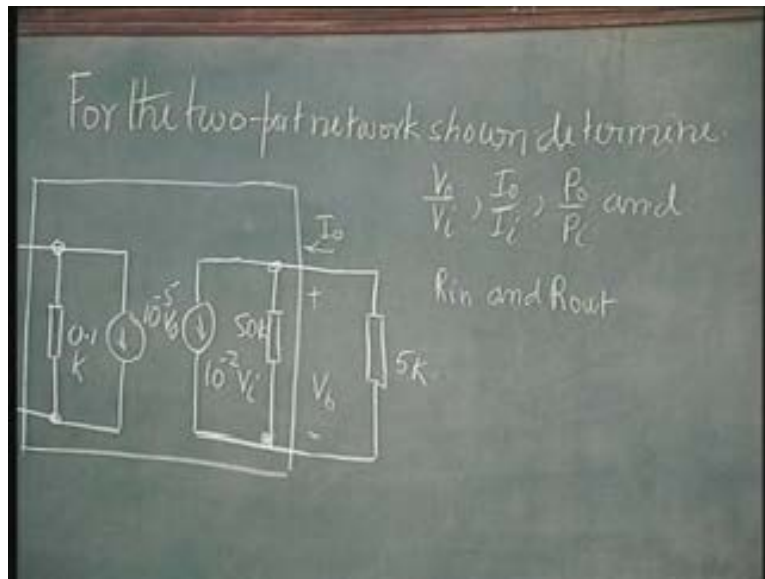 For the two-port network shown determine.
Vo/Vi , Io/Ii , Po/Pi and
Rin and Rout
Io
0.1
K
10^-5 Vo
10^-2 Vi
50k
+
Vo
-
5K